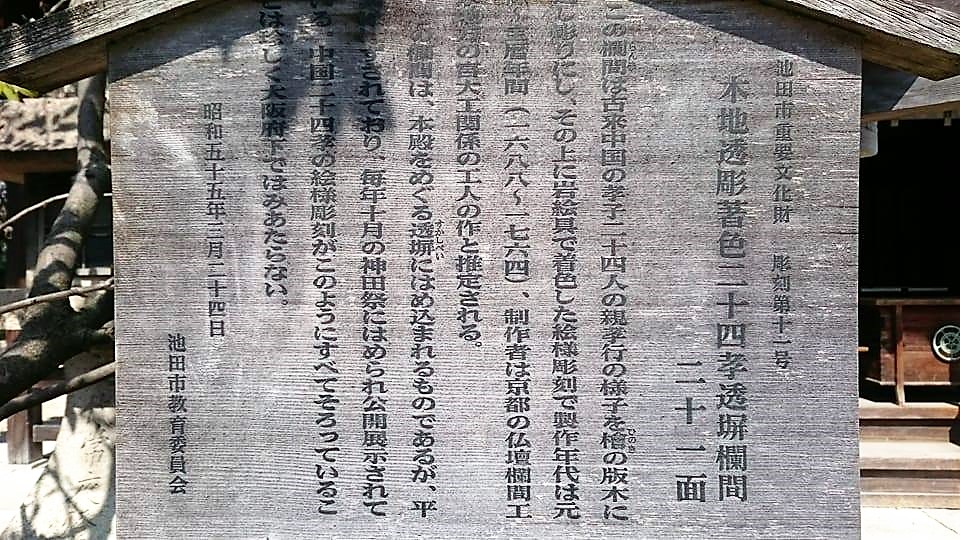 池田市重要文化財　彫刻第十一号
木地透彫著色二十四孝透塀欄間
二十一面
この欄間は古来中国の孝子二十四人の親孝行の様子を檜の版木に
し彫りにし、その上に岩絵具で着色した絵様彫刻で製作年代は元
宝暦年間（一六八八〜一七六四）、制作者は京都の仏壇欄間工
地方の宮大工関係の工人の作と推定される。
の欄間は、本殿をめぐる透塀にはめ込まれるものであるが、平
されており、毎年十月の神田祭にはめられ公開展示されて
る。中国二十四孝の絵様彫刻がこのようにすべてそろっているこ
とは珍しく大阪府下ではみあたらない。
昭和五十五年二月二十四日
池田市教育委員会